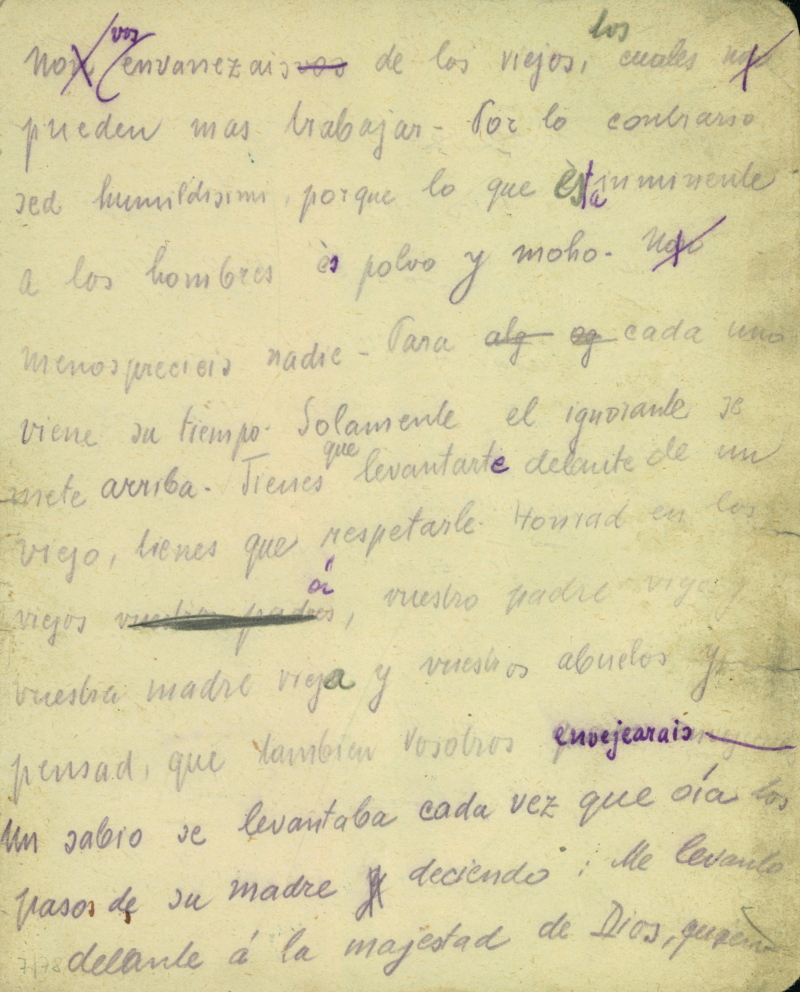 vos los
No envanezais de los viejos, cuales no
pueden mas trabajar - Por lo contrario
sed humildisimi, porque lo que està inminente
a los hombres ès polvo y moho. No
menosprecieis nadie - Para alg og cada uno
viene su tiempo. Solamente el ignorante se
mete arriba. Tienes que levantarte delante de un
viejo, tienes que respetarle. Honrad en los
viejos vuestros padres, á vuestro padre viejo y
vuestra madre vieja y vuestros abuelos y
pensad, que tambien vosotros envejearais
Un sabio se levantaba cada vez que oía los
pasos de su madre deciendo: Me levanto
delante á la majestad de Dios,
7/78